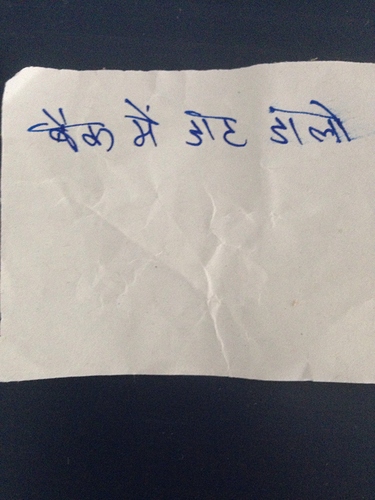 बैंक में डोट डालो